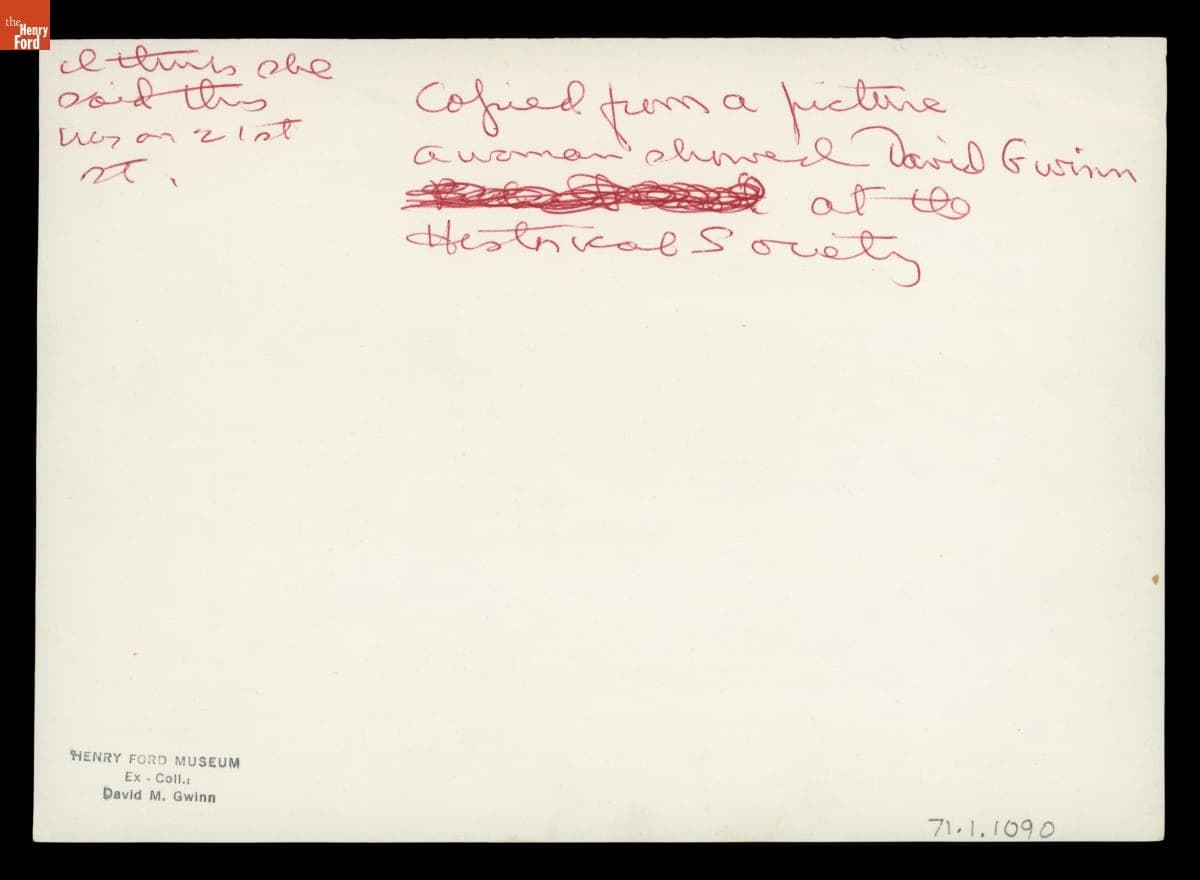 the
Henry
Ford
I think she
said this
was on 21st
st.
Copied from a picture
a woman showed David Gwinn
at the
Historical Society
HENRY FORD MUSEUM
Ex - Coll.:
David M. Gwinn
71.1.1090